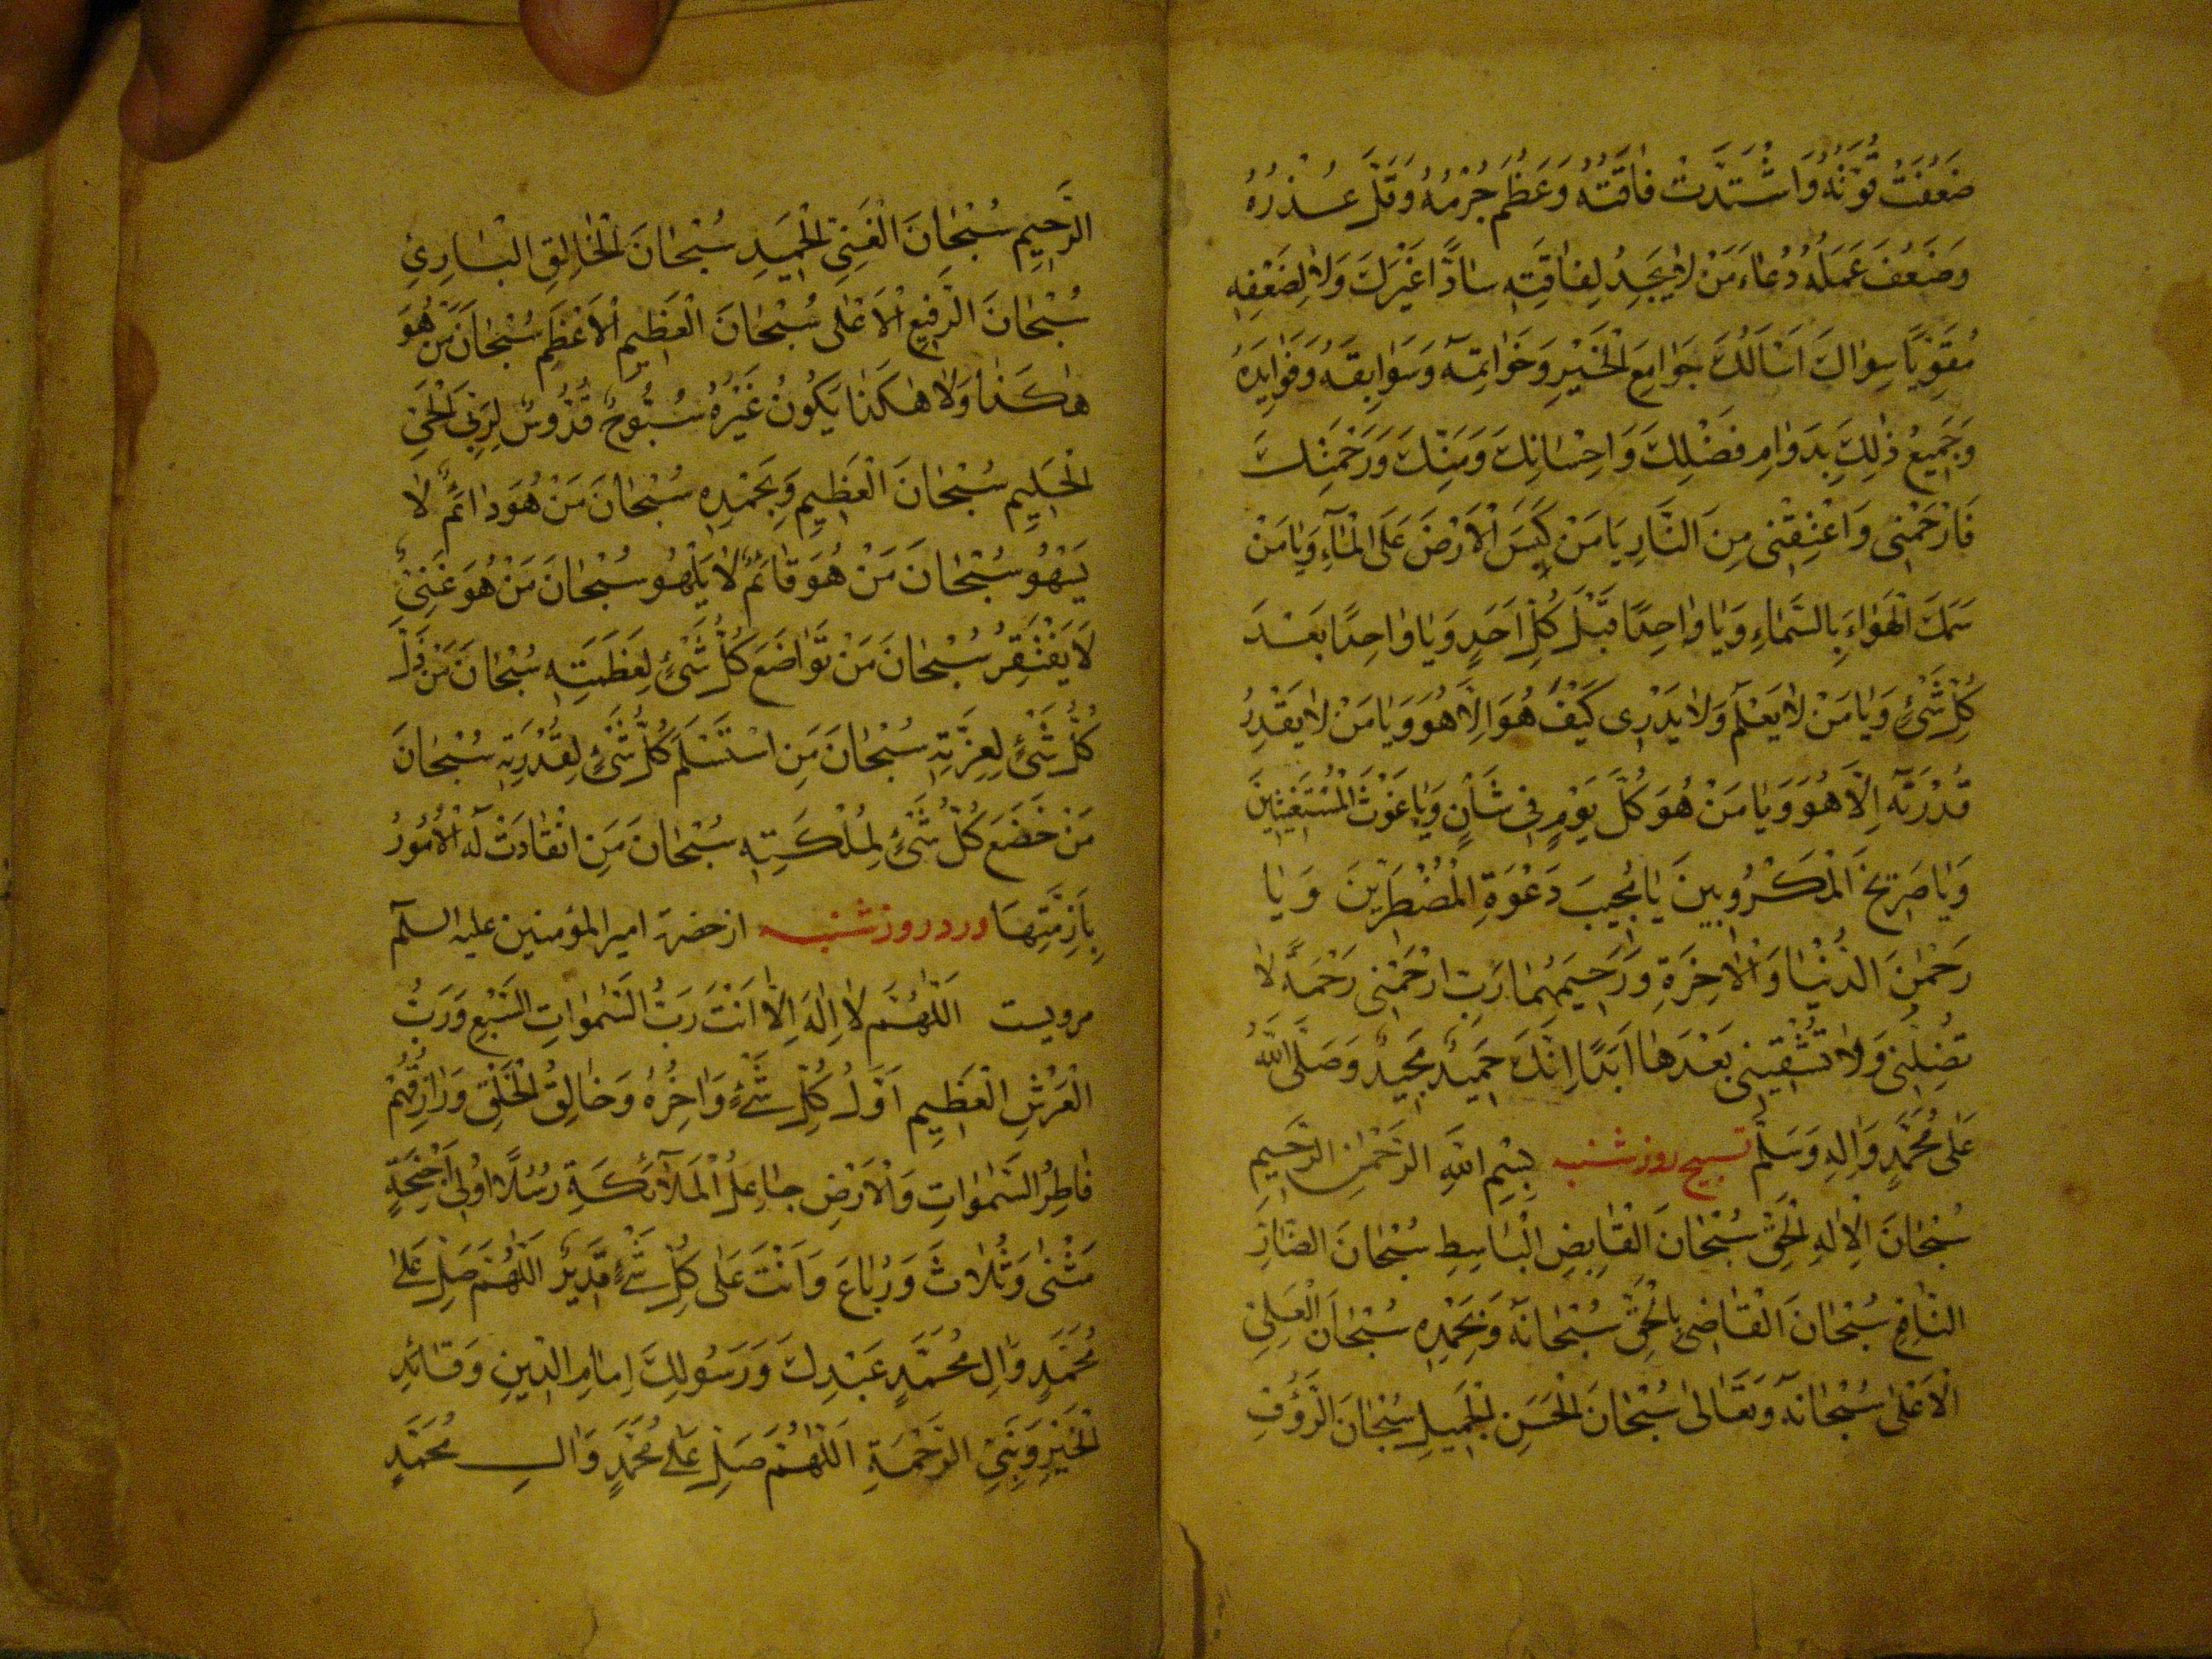 ضَعُفَتْ قُوَّتُهُ وَاشْتَدَّتْ فَاقَتُهُ وَعَظُمَ جُرْمُهُ وَقَلَّ عُذْرُهُ
وَضَعُفَ عَمَلُهُ دُعَاءَ مَنْ لَا يَجِدُ لِفَاقَتِهِ سَادًّا غَيْرَكَ وَلَا لِضَعْفِهِ
مُقَوِّيًا سِوَاكَ اَسْاَلُكَ جَوَامِعَ الْخَيْرِ وَخَوَاتِمَهُ وَسَوَابِقَهُ وَفَوَايِدَهُ
وَجَمِيعَ ذٰلِكَ بِدَوَامِ فَضْلِكَ وَاِحْسَانِكَ وَمَنِّكَ وَرَحْمَتِكَ
فَارْحَمْنِى وَاعْتِقْنِى مِنَ النَّارِ يَا مَنْ كَبَسَ الْاَرْضَ عَلَى الْمَآءِ وَيَا مَنْ
سَمَكَ الْهَوَاءَ بِالسَّمَاءِ وَيَا وَاحِدًا قَبْلَ كُلِّ اَحَدٍ وَيَا وَاحِدًا بَعْدَ
كُلِّ شَىْءٍ وَيَا مَنْ لَا يَعْلَمُ وَلَا يَدْرِى كَيْفَ هُوَ اِلَّا هُوَ وَيَا مَنْ لَا يَقْدِرُ
قُدْرَتَهُ اِلَّا هُوَ وَيَا مَنْ هُوَ كُلَّ يَوْمٍ فِى شَأْنٍ وَيَا غَوْثَ الْمُسْتَغِيثِينَ
وَيَا صَرِيخَ الْمَكْرُوبِينَ يَا مُجِيبَ دَعْوَةِ الْمُضْطَرِّينَ وَيَا
رَحْمٰنَ الدُّنْيَا وَالْاٰخِرَةِ وَرَحِيمَهُمَا رَبِّ ارْحَمْنِى رَحْمَةً لَا
تُضِلُّنِى وَلَا تُشْقِينِى بَعْدَهَا اَبَدًا اِنَّكَ حَمِيدٌ مَجِيدٌ وَصَلَّى اللّٰهُ
عَلَى مُحَمَّدٍ وَاٰلِهِ وَسَلَّمَ تسبیح روز شنبه بِسْمِ اللّٰهِ الرَّحْمٰنِ الرَّحِيمِ
سُبْحَانَ الْاِلٰهِ الْحَقِّ سُبْحَانَ الْقَابِضِ الْبَاسِطِ سُبْحَانَ الضَّارِّ
النَّافِعِ سُبْحَانَ الْقَاضِى بِالْحَقِّ سُبْحَانَهُ وَبِحَمْدِهِ سُبْحَانَ الْعَلِىِّ
الْاَعْلٰى سُبْحَانَهُ وَتَعَالٰى سُبْحَانَ الْحَسَنِ الْجَمِيلِ سُبْحَانَ الرَّؤُفِ
الرَّحِيمِ سُبْحَانَ الْغَنِىِّ الْحَمِيدِ سُبْحَانَ الْخَالِقِ الْبَارِئِ
سُبْحَانَ الرَّفِيعِ الْاَعْلٰى سُبْحَانَ الْعَظِيمِ الْاَعْظَمِ سُبْحَانَ مَنْ هُوَ
هٰكَذَا وَلَا هٰكَذَا يَكُونُ غَيْرُهُ سُبُّوحٌ قُدُّوسٌ لِرَبِّىَ الْحَىِّ
الْحَلِيمِ سُبْحَانَ الْعَظِيمِ وَبِحَمْدِهِ سُبْحَانَ مَنْ هُوَ دَائِمٌ لَا
يَسْهُو سُبْحَانَ مَنْ هُوَ قَائِمٌ لَا يَلْهُو سُبْحَانَ مَنْ هُوَ غَنِىٌّ
لَا يَفْتَقِرُ سُبْحَانَ مَنْ تَوَاضَعَ كُلُّ شَىْءٍ لِعَظَمَتِهِ سُبْحَانَ مَنْ ذَلَّ
كُلُّ شَىْءٍ لِعِزَّتِهِ سُبْحَانَ مَنِ اسْتَسْلَمَ كُلُّ شَىْءٍ لِقُدْرَتِهِ سُبْحَانَ
مَنْ خَضَعَ كُلُّ شَىْءٍ لِمُلْكَتِهِ سُبْحَانَ مَنِ انْقَادَتْ لَهُ الْاُمُورُ
بِاَزِمَّتِهَا ورد روز شنبه از حضرة امیر المؤمنین علیه السلم
مرویست اَللّٰهُمَّ لَا اِلٰهَ اِلَّا اَنْتَ رَبُّ السَّمٰوَاتِ السَّبْعِ وَرَبُّ
الْعَرْشِ الْعَظِيمِ اَوَّلُ كُلِّ شَىْءٍ وَاٰخِرُهُ وَخَالِقُ الْخَلْقِ وَرَازِقُهُمْ
فَاطِرُ السَّمٰوَاتِ وَالْاَرْضِ جَاعِلُ الْمَلَآئِكَةِ رُسُلًا اُولِى اَجْنِحَةٍ
مَثْنٰى وَثُلَاثَ وَرُبَاعَ وَاَنْتَ عَلٰى كُلِّ شَىْءٍ قَدِيرٌ اَللّٰهُمَّ صَلِّ عَلٰى
مُحَمَّدٍ وَاٰلِ مُحَمَّدٍ عَبْدِكَ وَرَسُولِكَ اِمَامِ الدِّينِ وَقَائِدِ
الْخَيْرِ وَنَبِىِّ الرَّحْمَةِ اَللّٰهُمَّ صَلِّ عَلٰى مُحَمَّدٍ وَاٰلِ مُحَمَّدٍ